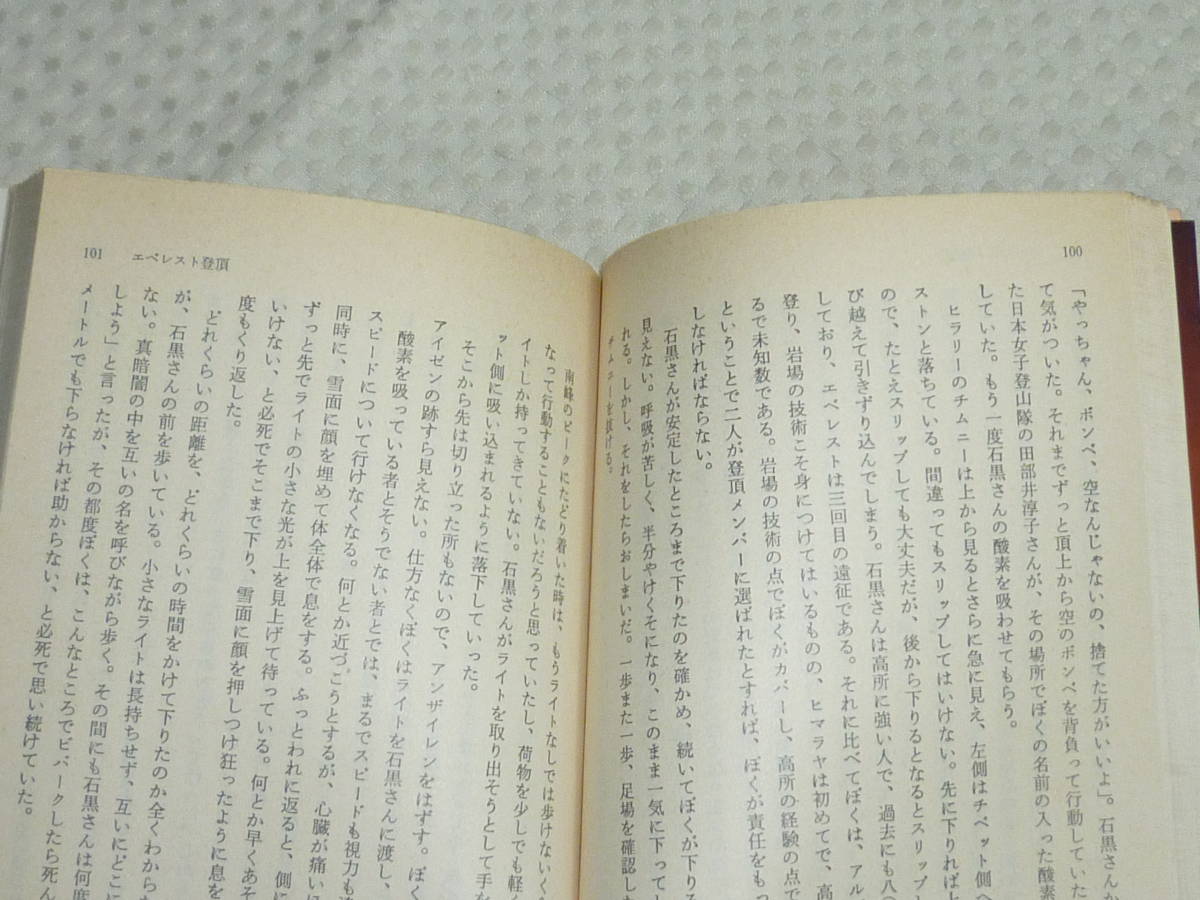 100
「やっちゃん、ボンベ、空なんじゃないの、捨てた方がいいよ」。石黒さんか
て気がついた。それまでずっと頂上から空のボンベを背負って行動していた
た日本女子登山隊の田部井淳子さんが、その場所でぼくの名前の入った酸素
していた。もう一度石黒さんの酸素を吸わせてもらう。
ヒラリーのチムニーは上から見るとさらに急に見え、左側はチベット側へ
ストンと落ちている。間違ってもスリップしてはいけない。先に下りれば上
ので、たとえスリップしても大丈夫だが、後から下りるとなるとスリップ
び越えて引きずり込んでしまう。石黒さんは高所に強い人で、過去にも八〇
しており、エベレストは三回目の遠征である。それに比べてぼくは、アル
登り、岩場の技術こそ身につけてはいるものの、ヒマラヤは初めてで、高
るで未知数である。岩場の技術の点でぼくがカバーし、高所の経験の点で
ということで二人が登頂メンバーに選ばれたとすれば、ぼくが責任をもっ
しなければならない。
石黒さんが安定したところまで下りたのを確かめ、続いてぼくが下りる
見えない。呼吸が苦しく、半分やけくそになり、このまま一気に下って
れる。しかし、それをしたらおしまいだ。一歩また一歩、足場を確認し
チムニーを抜ける。
101 エベレスト登頂
南峰のピークにたどり着いた時は、もうライトなしでは歩けないく
なって行動することもないだろうと思っていたし、荷物を少しでも軽く
イトしか持ってきていない。石黒さんがライトを取り出そうとして手を
ット側に吸い込まれるように落下していった。
そこから先は切り立った所もないので、アンザイレンをはずす。ぼく
アイゼンの跡すら見えない。仕方なくぼくはライトを石黒さんに渡し、
酸素を吸っている者とそうでない者とでは、まるでスピードも視力も
スピードについて行けなくなる。何とか近づこうとするが、心臓が痛いほ
同時に、雪面に顔を埋めて体全体で息をする。ふっとわれに返ると、側に
ずっと先でライトの小さな光が上を見上げて待っている。何とか早くあそ
いけない、と必死でそこまで下り、雪面に顔を押しつけ狂ったように息を
度もくり返した。
どれくらいの距離を、どれくらいの時間をかけて下りたのか全くわから
が、石黒さんの前を歩いている。小さなライトは長持ちせず、互いにどこに
ない。真暗闇の中を互いの名を呼びながら歩く。その間にも石黒さんは何度
しよう」と言ったが、その都度ぼくは、こんなところでビバークしたら死ん
メートルでも下らなければ助からない、と必死で思い続けていた。